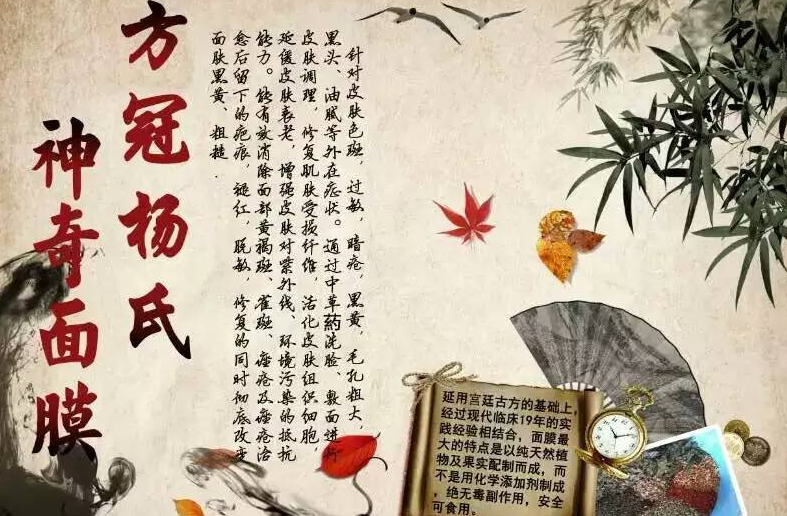 方冠杨氏
神奇面膜
针对皮肤色斑，过敏，暗疮，黑黄，毛孔粗大，
黑头、油腻等外在症状。通过中草葯洗脸、敷面进行
皮肤调理，修复肌肤受损纤维，活化皮肤组织细胞，
延缓皮肤衰老，增强皮肤对紫外线、环境污染的抵抗
能力。能有效消除面部黄褐斑、雀斑、痤疮及痤疮治
愈后留下的疤痕，褪红，脱敏，修复的同时彻底改变
面肤黑黄、粗糙.
延用宫廷古方的基础上，
经过现代临床19年的实
践经验相结合，面膜最
大的特点是以纯天然植
物及果实配制而成，而
不是用化学添加剂制成
，绝无毒副作用，安全
可食用。